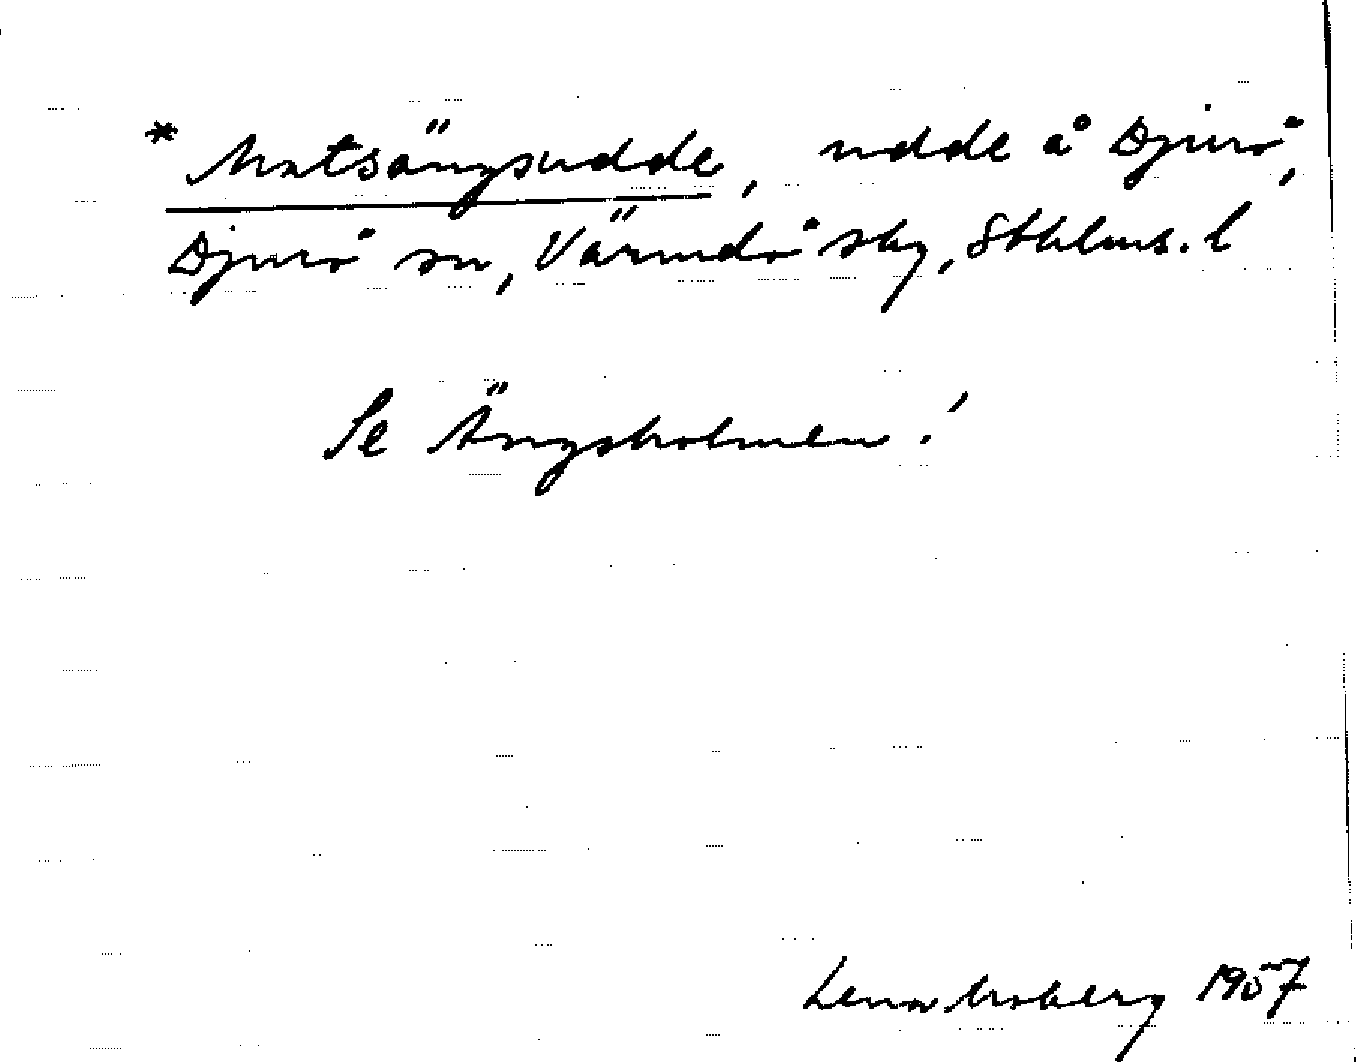 * Matsängsudde, udde å Djurö,
Djurö sn, Värmdö sky, Sthlms. l
Se Ängsholmen!
Lena Moberg 1957